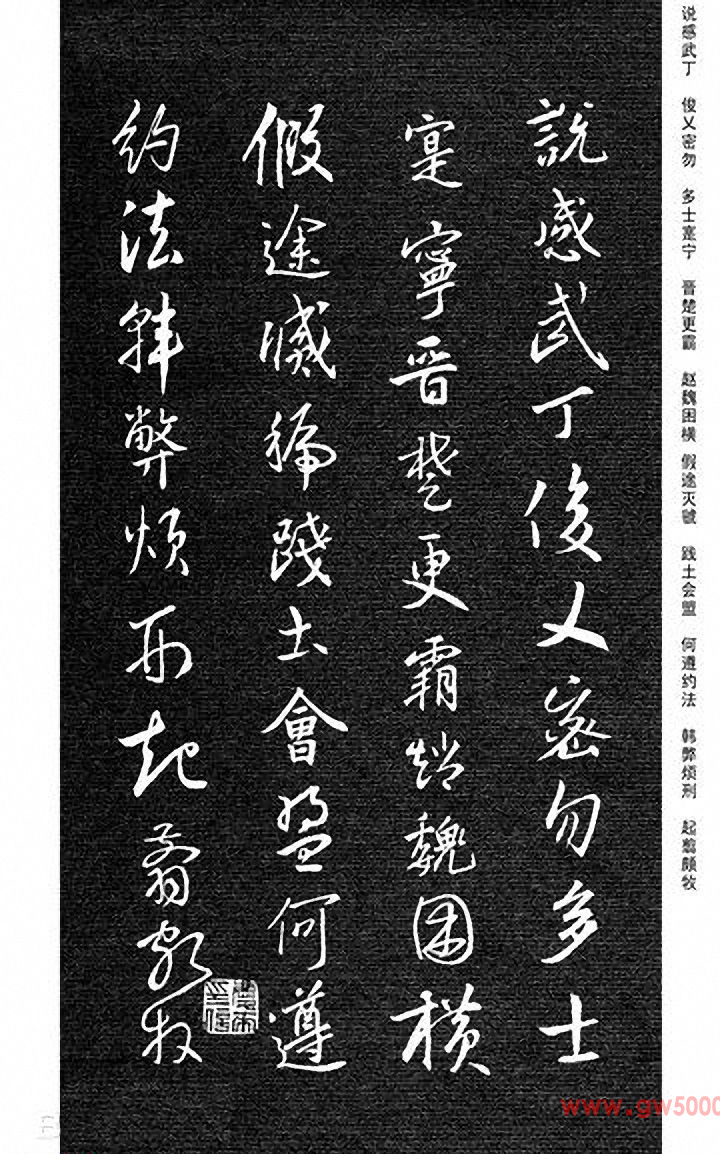 说感武丁 俊乂密勿 多士寔宁 晋楚更霸 赵魏困横 假途灭虢 践土会盟 何遵约法 韩弊烦刑 起翦颇牧
說感武丁俊乂密勿多士
寔寧晉楚更霸趙魏困橫
假途滅虢踐土會盟何遵
約法韓弊煩刑起翦頗牧
www.gw5000